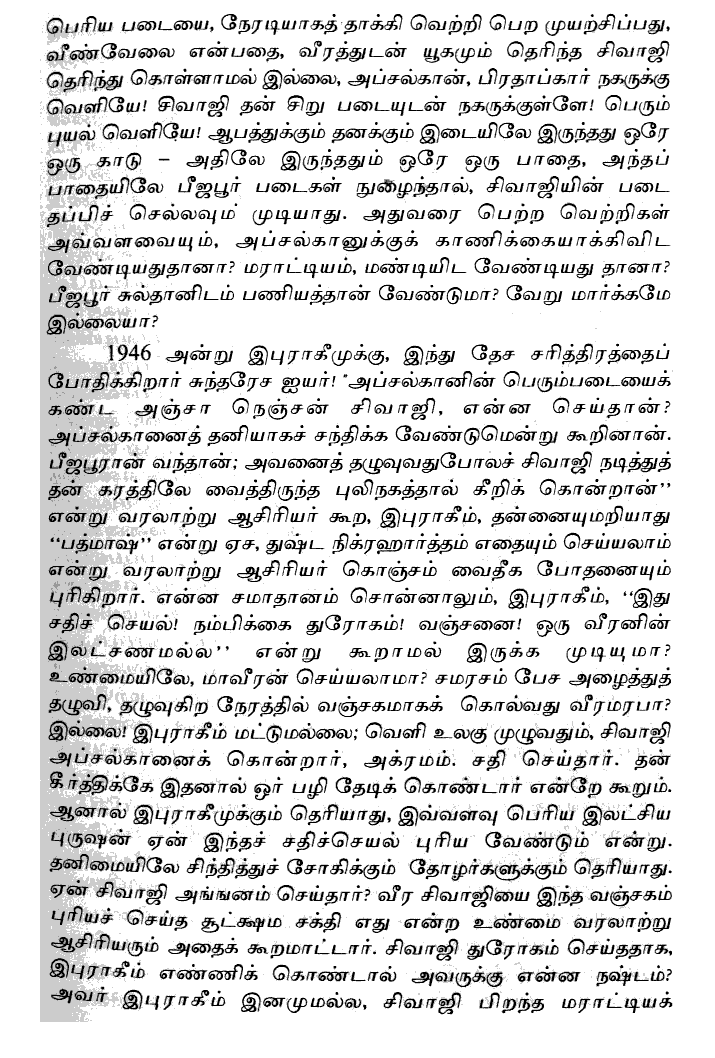 பெரிய படையை, நேரடியாகத் தாக்கி வெற்றி பெற முயற்சிப்பது,
வீண்வேலை என்பதை, வீரத்துடன் யூகமும் தெரிந்த சிவாஜி
தெரிந்து கொள்ளாமல் இல்லை, அப்சல்கான், பிரதாப்கார் நகருக்கு
வெளியே! சிவாஜி தன் சிறு படையுடன் நகருக்குள்ளே! பெரும்
புயல் வெளியே! ஆபத்துக்கும் தனக்கும் இடையிலே இருந்தது ஒரே
ஒரு காடு – அதிலே இருந்ததும் ஒரே ஒரு பாதை, அந்தப்
பாதையிலே பீஜபூர் படைகள் நுழைந்தால், சிவாஜியின் படை
தப்பிச் செல்லவும் முடியாது. அதுவரை பெற்ற வெற்றிகள்
அவ்வளவையும், அப்சல்கானுக்குக் காணிக்கையாக்கிவிட
வேண்டியதுதானா? மராட்டியம், மண்டியிட வேண்டியது தானா?
பீஜபூர் சுல்தானிடம் பணியத்தான் வேண்டுமா? வேறு மார்க்கமே
இல்லையா?
1946 அன்று இபுராகீமுக்கு, இந்து தேச சரித்திரத்தைப்
போதிக்கிறார் சுந்தரேச ஐயர்! "அப்சல்கானின் பெரும்படையைக்
கண்ட அஞ்சா நெஞ்சன் சிவாஜி, என்ன செய்தான்?
அப்சல்கானைத் தனியாகச் சந்திக்க வேண்டுமென்று கூறினான்.
பீஜபூரான் வந்தான்; அவனைத் தழுவுவதுபோலச் சிவாஜி நடித்துத்
தன் கரத்திலே வைத்திருந்த புலிநகத்தால் கீறிக் கொன்றான்''
என்று வரலாற்று ஆசிரியர் கூற, இபுராகீம், தன்னையுமறியாது
''பத்மாஷ்'' என்று ஏச, துஷ்ட நிக்ரஹார்த்தம் எதையும் செய்யலாம்
என்று வரலாற்று ஆசிரியர் கொஞ்சம் வைதீக போதனையும்
புரிகிறார். என்ன சமாதானம் சொன்னாலும், இபுராகீம், ''இது
சதிச் செயல்! நம்பிக்கை துரோகம்! வஞ்சனை! ஒரு வீரனின்
இலட்சணமல்ல'' என்று கூறாமல் இருக்க முடியுமா?
உண்மையிலே, மாவீரன் செய்யலாமா? சமரசம் பேச அழைத்துத்
தழுவி, தழுவுகிற நேரத்தில் வஞ்சகமாகக் கொல்வது வீரமரபா?
இல்லை! இபுராகீம் மட்டுமல்லை; வெளி உலகு முழுவதும், சிவாஜி
அப்சல்கானைக் கொன்றார், அக்ரமம். சதி செய்தார். தன்
கீர்த்திக்கே இதனால் ஓர் பழி தேடிக் கொண்டார் என்றே கூறும்.
ஆனால் இபுராகீமுக்கும் தெரியாது, இவ்வளவு பெரிய இலட்சிய
புருஷன் ஏன் இந்தச் சதிச்செயல் புரிய வேண்டும் என்று.
தனிமையிலே சிந்தித்துச் சோகிக்கும் தோழர்களுக்கும் தெரியாது.
ஏன் சிவாஜி அங்ஙனம் செய்தார்? வீர சிவாஜியை இந்த வஞ்சகம்
புரியச் செய்த சூட்க்ஷம சக்தி எது என்ற உண்மை வரலாற்று
ஆசிரியரும் அதைக் கூறமாட்டார். சிவாஜி துரோகம் செய்ததாக,
இபுராகீம் எண்ணிக் கொண்டால் அவருக்கு என்ன நஷ்டம்?
அவர் இபுராகீம் இனமுமல்ல, சிவாஜி பிறந்த மராட்டியக்